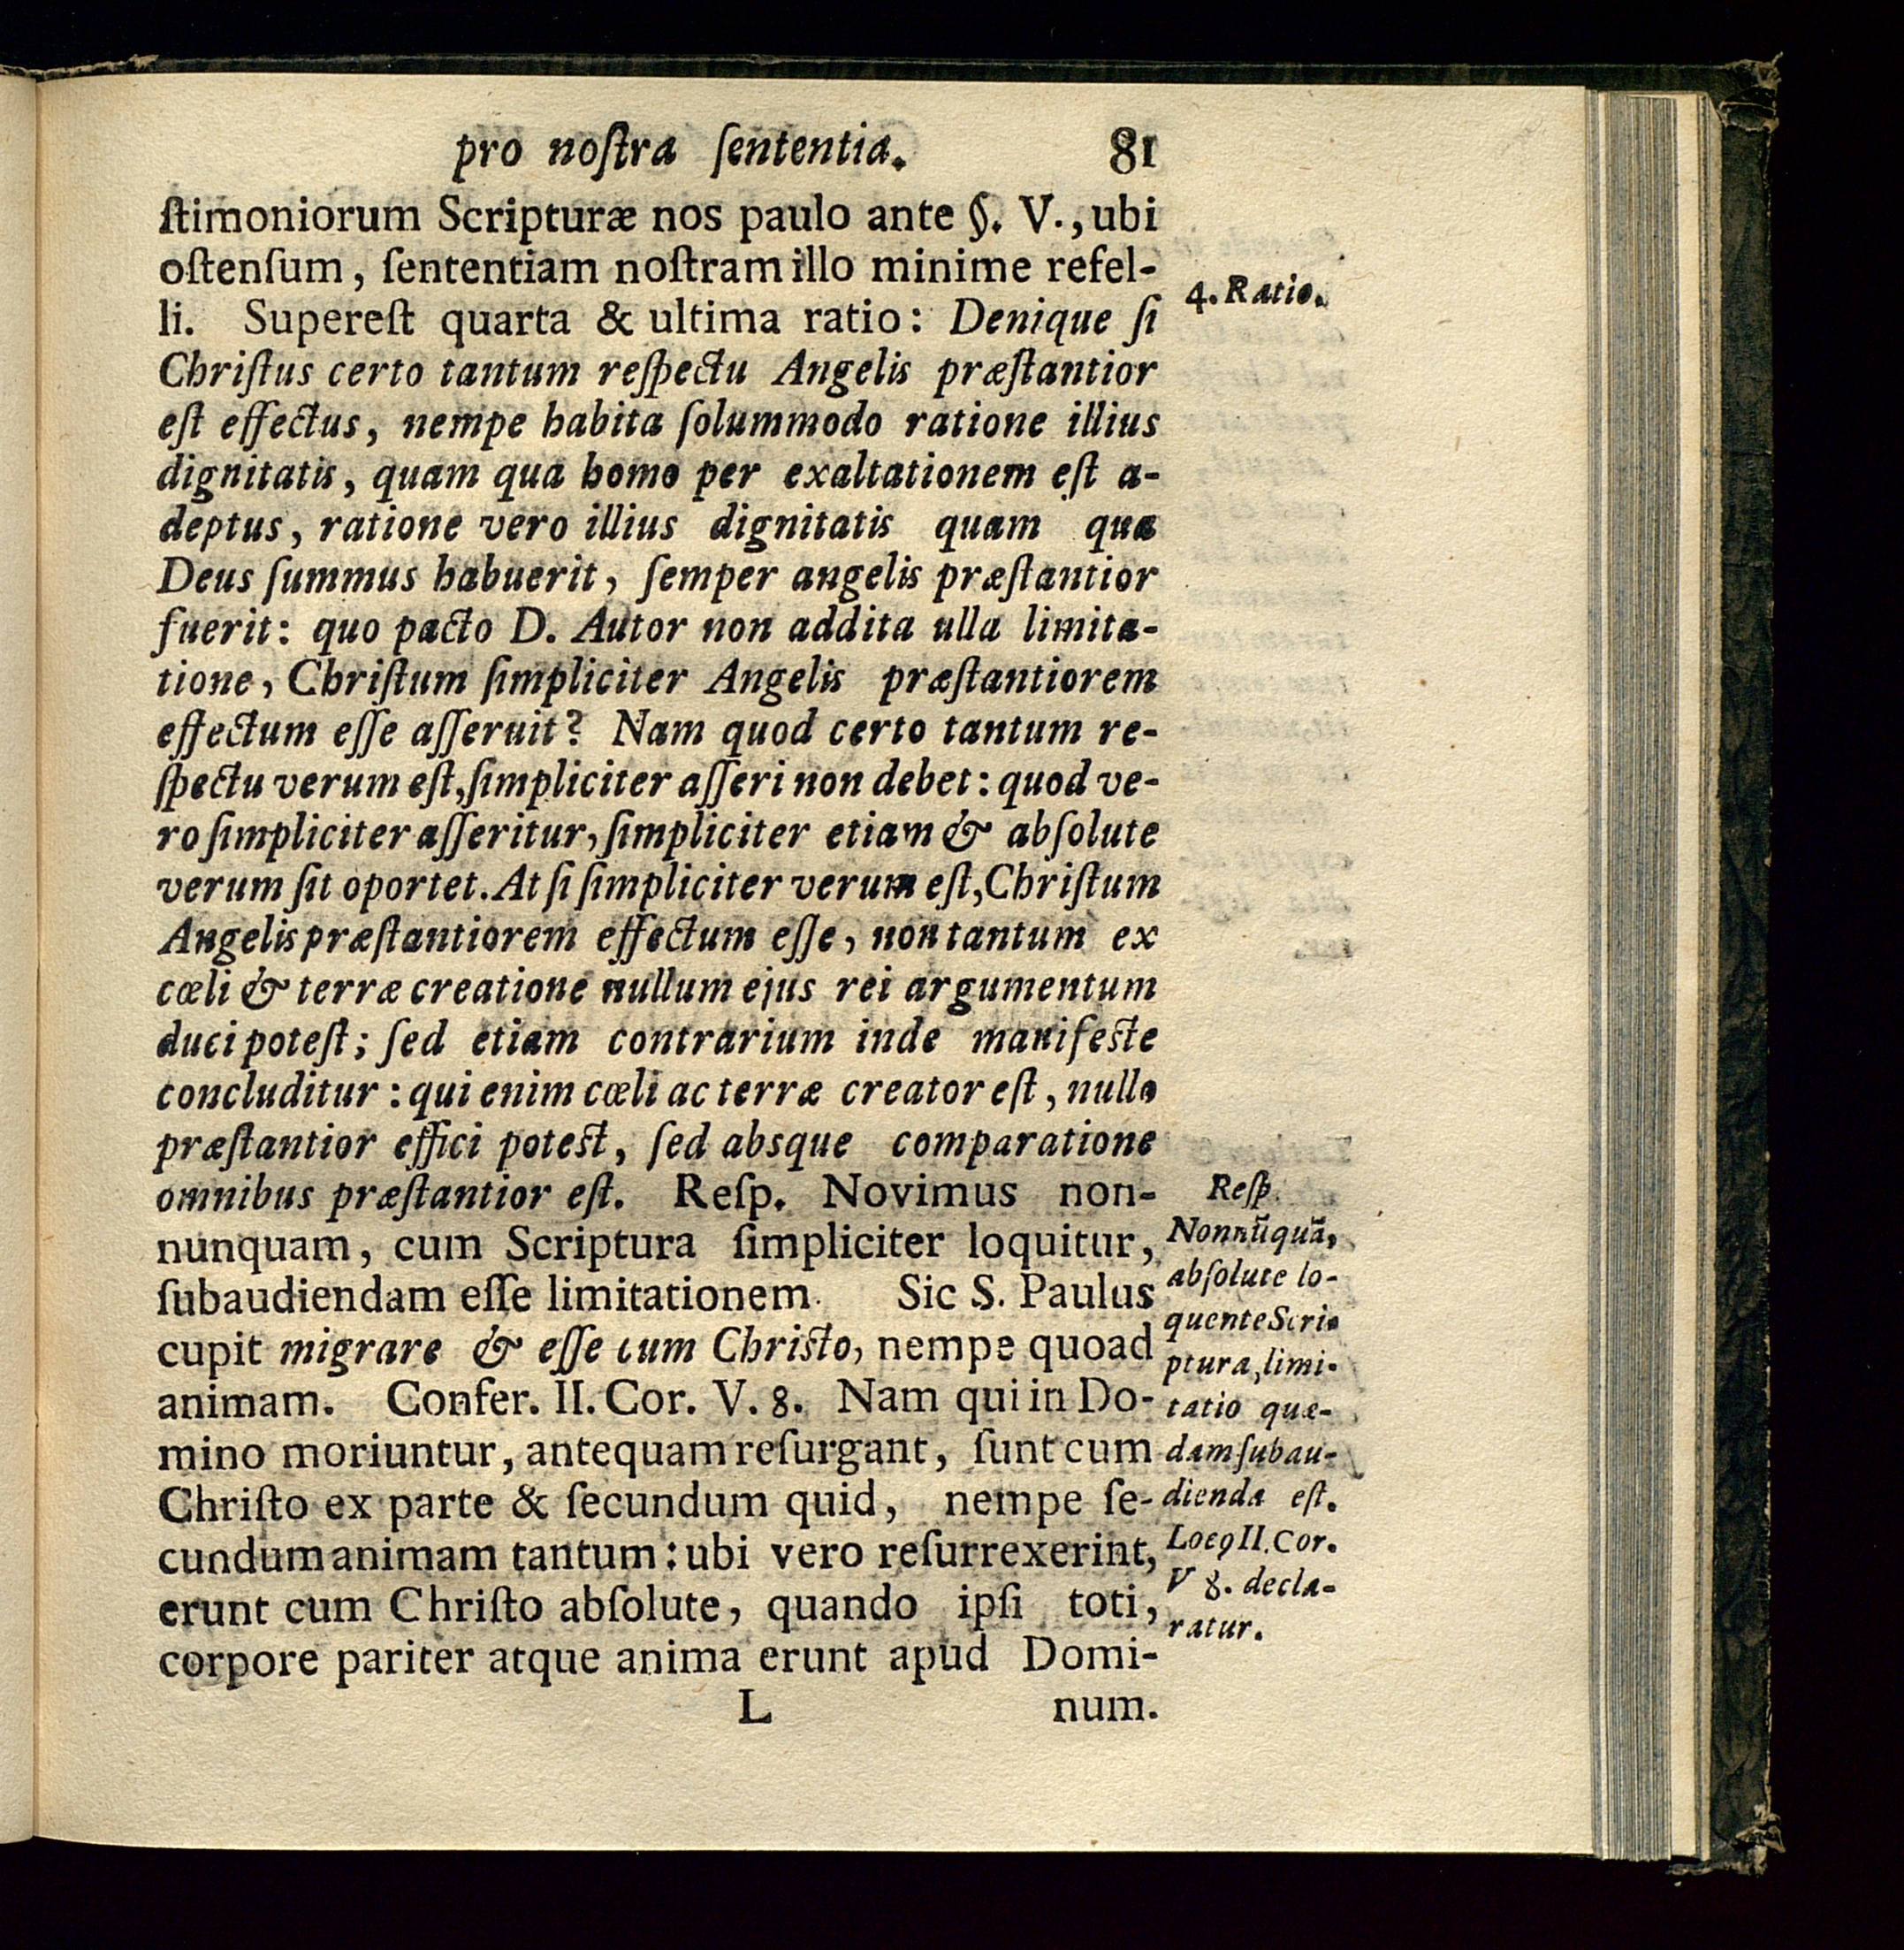 pro noſtra ſententia. 81
ſtimoniorum Scripturæ nos paulo ante §. V., ubi
oſtenſum, ſententiam noſtram illo minime refel-
li. Supereſt quarta & ultima ratio: Denique ſi
4. Ratio.
Chriſtus certo tantum reſpectu Angelis præſtantior
eſt effectus, nempe habita ſolummodo ratione illius
dignitatis, quam qua homo per exaltationem eſt a-
deptus, ratione vero illius dignitatis quam qua
Deus ſummus habuerit, ſemper angelis præſtantior
fuerit: quo pacto D. Autor non addita ulla limita-
tione, Chriſtum ſimpliciter Angelis præſtantiorem
effectum eſſe aſſeruit? Nam quod certo tantum re-
ſpectu verum eſt, ſimpliciter aſſeri non debet: quod ve-
ro ſimpliciter aſſeritur, ſimpliciter etiam & abſolute
verum ſit oportet. At ſi ſimpliciter verum eſt, Chriſtum
Angelis præſtantiorem effectum eſſe, non tantum ex
cœli & terræ creatione nullum ejus rei argumentum
duci poteſt; ſed etiam contrarium inde manifeſte
concluditur: qui enim cœli ac terræ creator eſt, nullo
præſtantior effici poteſt, ſed absque comparatione
omnibus præſtantior eſt. Reſp. Novimus non-
nunquam, cum Scriptura ſimpliciter loquitur,
ſubaudiendam eſſe limitationem. Sic S. Paulus
cupit migrare & eſſe cum Chriſto, nempe quoad
animam. Confer. II. Cor. V. 8. Nam qui in Do-
mino moriuntur, antequam reſurgant, ſunt cum
Chriſto ex parte & ſecundum quid, nempe ſe-
cundum animam tantum: ubi vero reſurrexerint,
erunt cum Chriſto abſolute, quando ipſi toti,
corpore pariter atque anima erunt apud Domi-
Reſp.
Nonnũquã,
abſolute lo-
quente Scri-
ptura, limi-
tatio quæ-
dam ſubau-
dienda eſt.
Locꝰ II. Cor.
V 8. decla-
ratur.
L num.